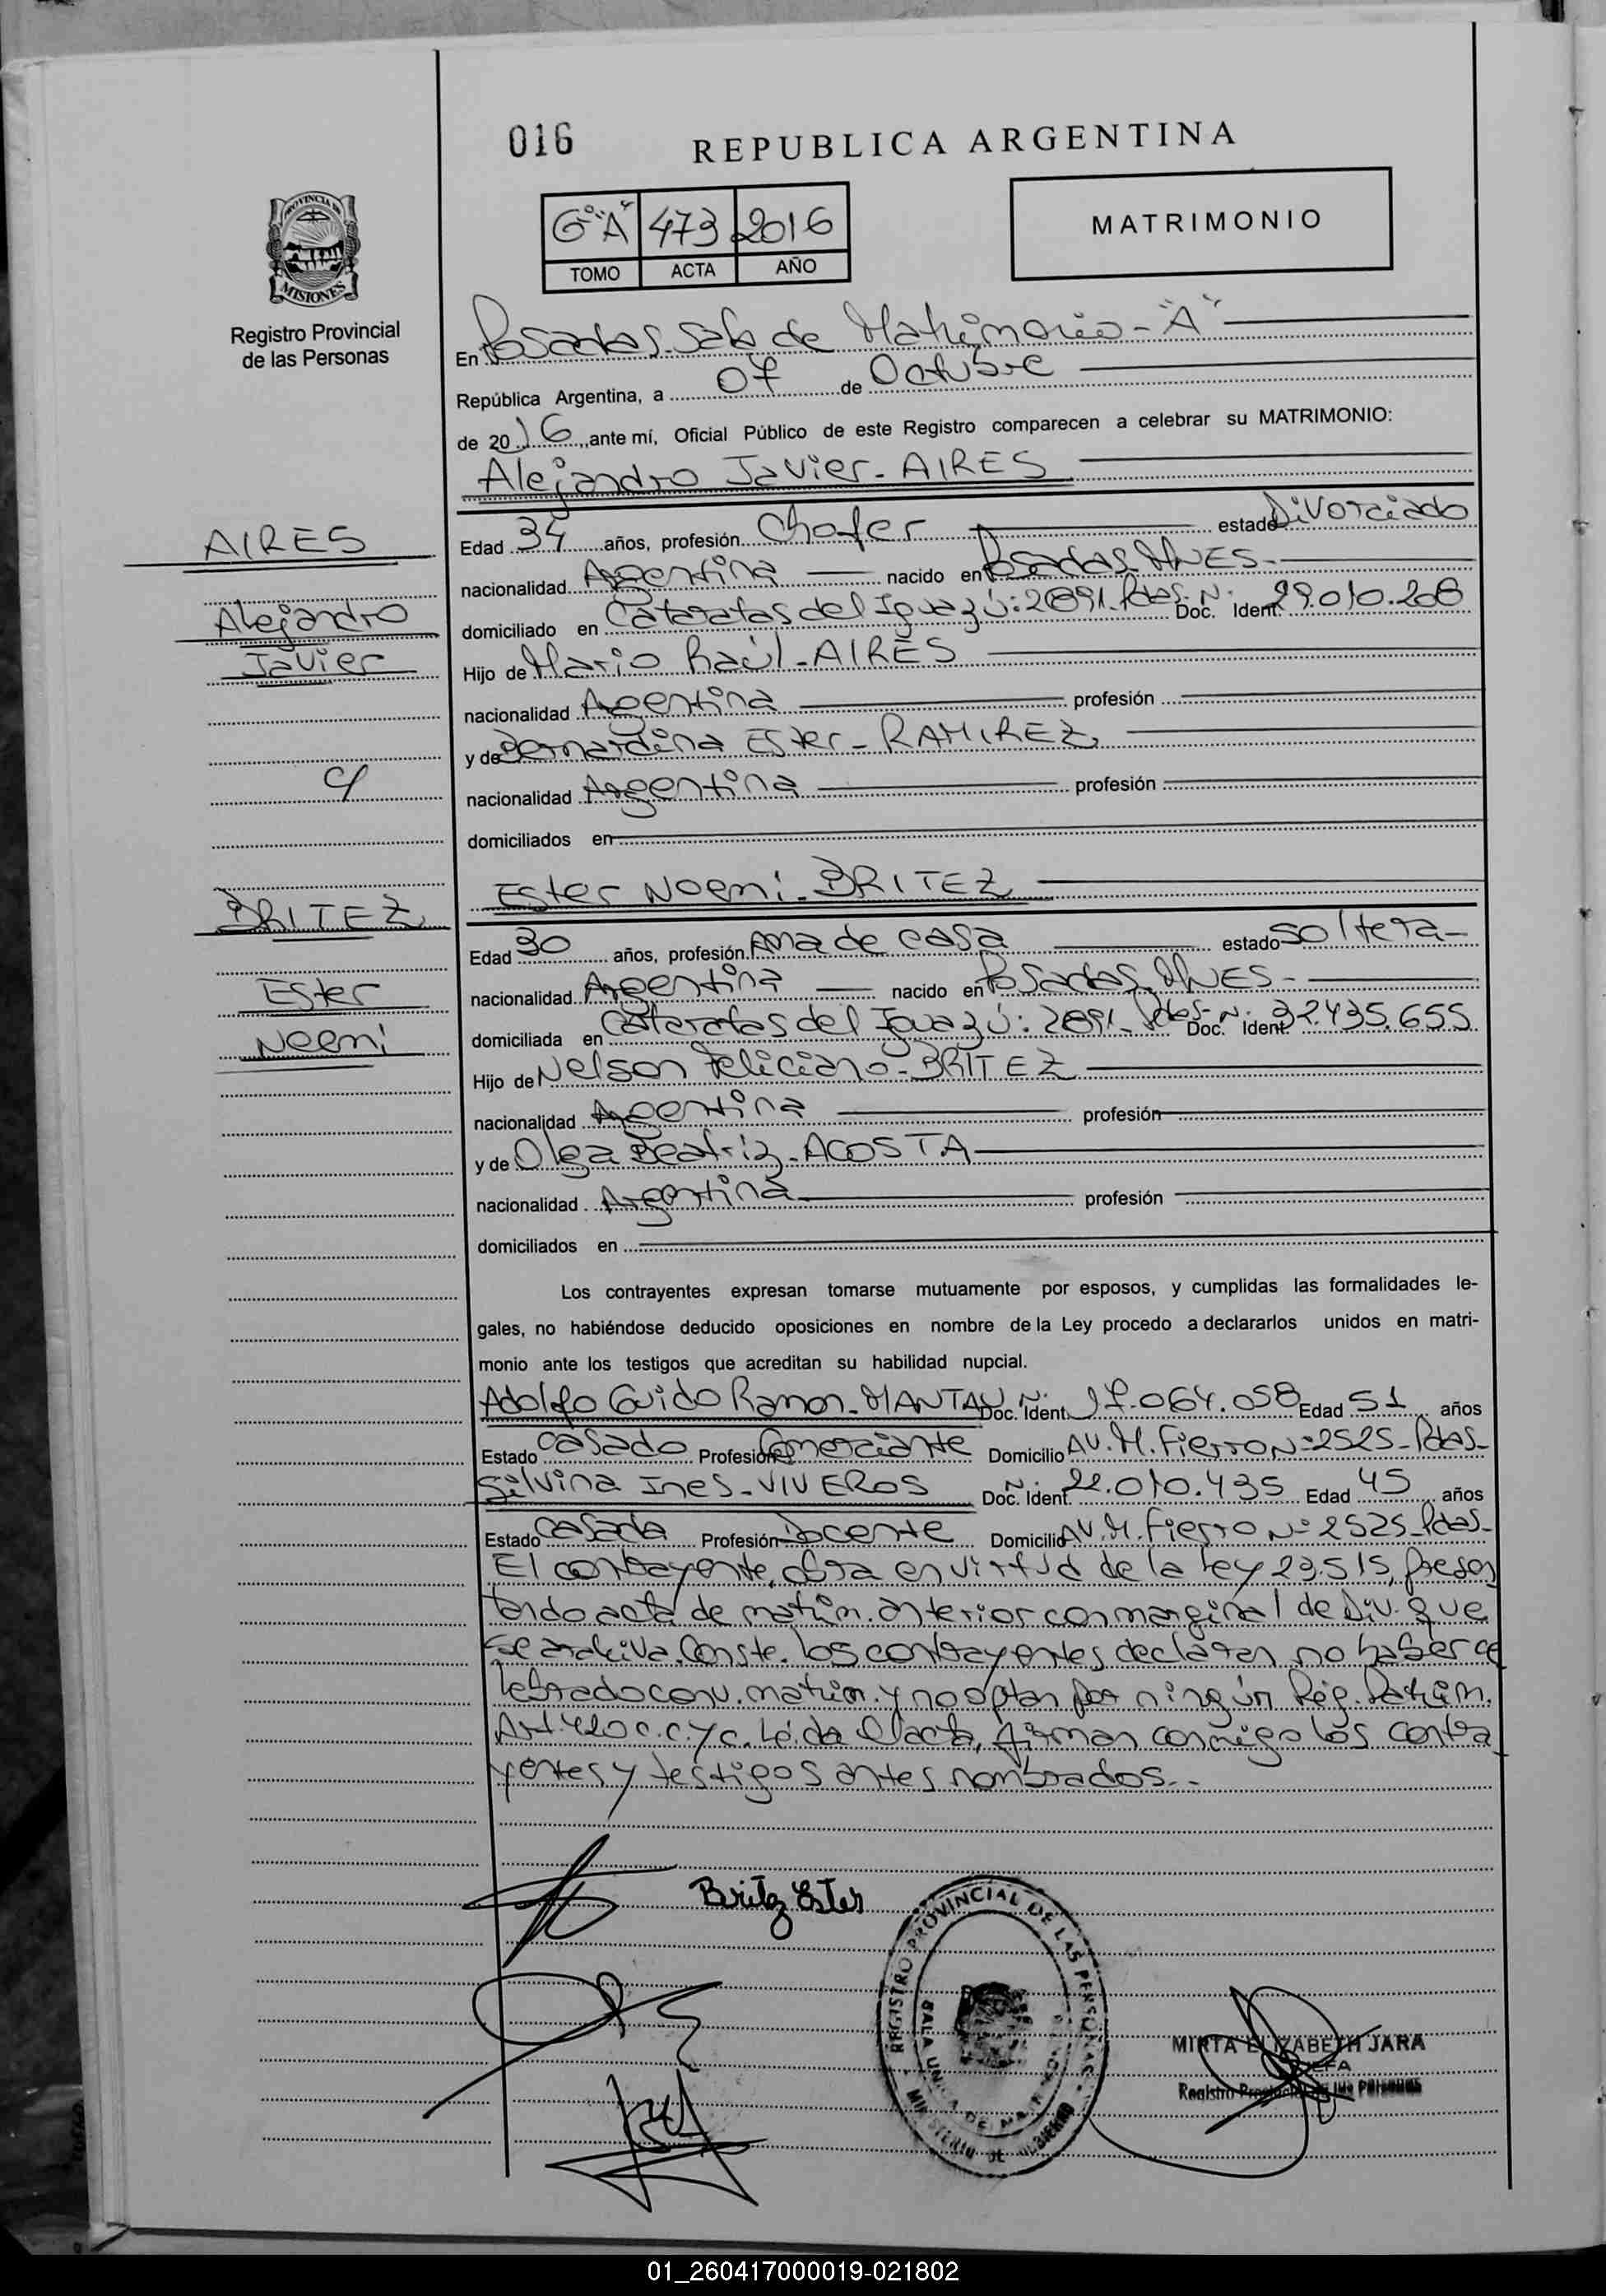 016
REPUBLICA ARGENTINA
6° "A" 473 2016
TOMO ACTA AÑO
MATRIMONIO
PROVINCIA DE
MISIONES
Registro Provincial
de las Personas
En Posadas. Sala de Matrimonio - "A"
República Argentina, a 07 de Octubre
de 2016, ante mí, Oficial Público de este Registro comparecen a celebrar su MATRIMONIO:
Alejandro Javier - AIRES
AIRES
Alejandro
Javier
c/
BRITEZ
Ester
Noemi
Edad 34 años, profesión Chofer estado Divorciado
nacionalidad Argentina nacido en Posadas. MNES.
domiciliado en Cataratas del Iguazú: 2891. Pdas. N: Doc. Ident. 29.010.208
Hijo de Mario Raúl - AIRES
nacionalidad Argentina profesión
y de Bernardina Ester - RAMIREZ
nacionalidad Argentina profesión
domiciliados en
Ester Noemi - BRITEZ
Edad 30 años, profesión Ama de casa estado Soltera -
nacionalidad Argentina nacido en Posadas. MNES -
domiciliada en Cataratas del Iguazú: 2891 - Pdas. N: Doc. Ident. 32.435.655
Hijo de Nelson Feliciano - BRITEZ
nacionalidad Argentina profesión
y de Olga Beatriz - ACOSTA
nacionalidad Argentina profesión
domiciliados en
Los contrayentes expresan tomarse mutuamente por esposos, y cumplidas las formalidades le-
gales, no habiéndose deducido oposiciones en nombre de la Ley procedo a declararlos unidos en matri-
monio ante los testigos que acreditan su habilidad nupcial.
Adolfo Guido Ramon - MANTAU N: Doc. Ident. 17.064.058 Edad 51 años
Estado Casado Profesión Comerciante Domicilio AV. M. Fierro N: 2525 - Pdas -
Silvina Ines - VIVEROS N: Doc. Ident. 22.010.435 Edad 45 años
Estado Casada Profesión Docente Domicilio AV. M. Fierro N: 2525 - Pdas -
El contrayente, obra en virtud de la Ley 23.515, presen
tando acta de matrim. anterior con marginal de Div. que
se archiva. Conste. los contrayentes declaran no haber ce
lebrado conv. matrim. y no optan por ningún Rég. Patrim.
Art. 420 c.c. y c. Leída el acta, firman conmigo los contra
yentes y testigos antes nombrados. -
Britez Ester
REGISTRO PROVINCIAL DE LAS PERSONAS
MINISTERIO DE GOBIERNO
MIRTA ELIZABETH JARA
JEFA
Registro Provincial de las Personas
01_260417000019-021802